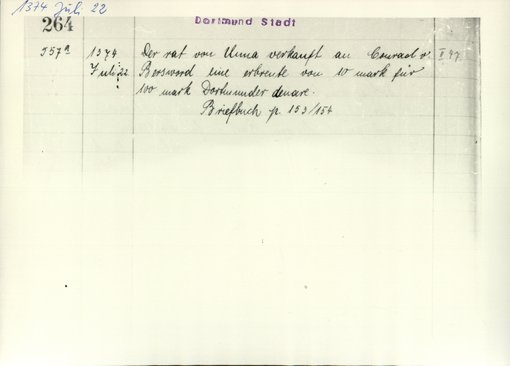 1374 Juli 22
264
Dortmund Stadt
357a 1374 Der rat von Unna verkauft an Conrad v. II 97
Juli 22 Bersword eine erbrente von 10 mark für
100 mark Dortmunder denare.
Briefbuch p. 153/154